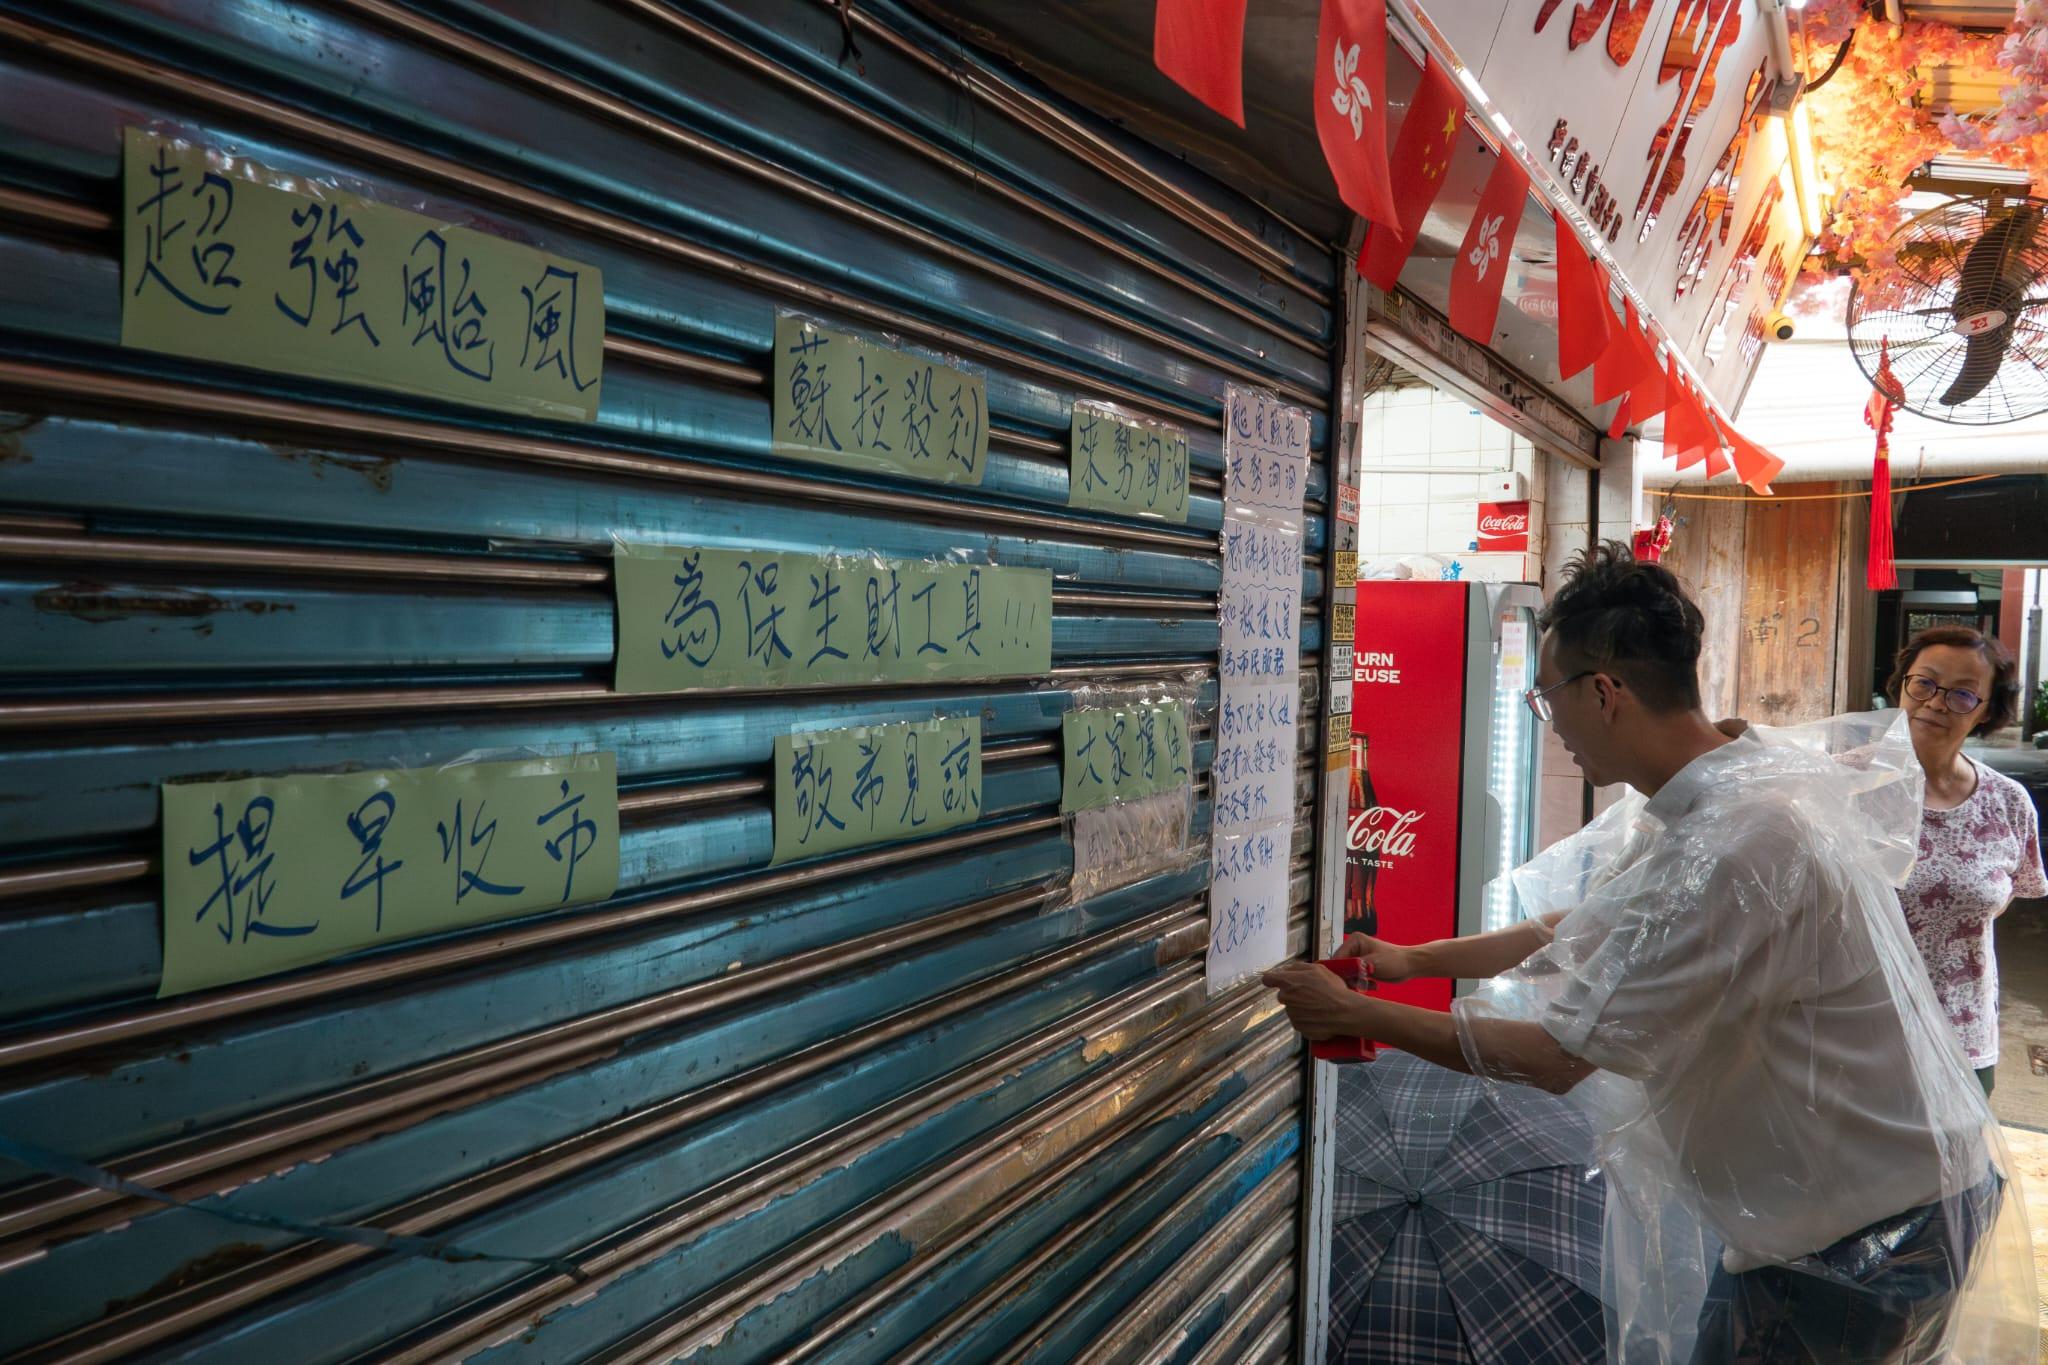 超強颱風
蘇拉殺到
來勢洶洶
為保生財工具!!!
提早收市
敬希見諒
大家撐住
颱風蘇拉
來勢洶洶
感謝每位記者
和救援人員
為市民服務
免費派發愛心
奶茶壹杯
以示感謝!!!
大家加油!!
Coca-Cola
TURN
EUSE
Cola
AL TASTE
南2